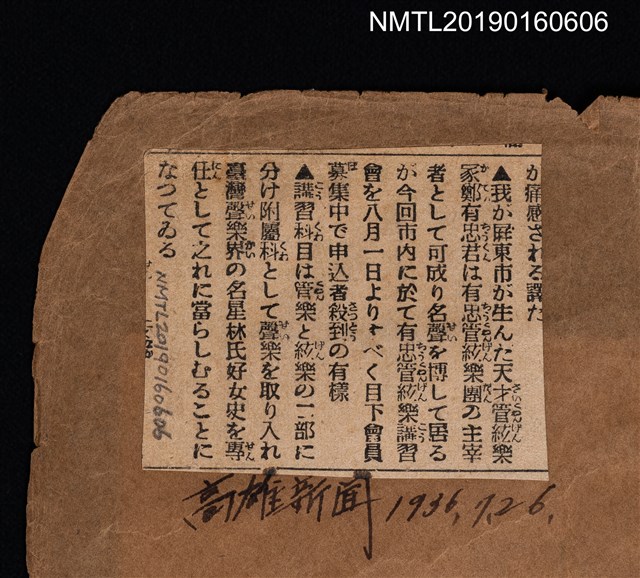 NMTL20190160606
が痛感される譯だ
▲我が屛東市が生んだ天才管絃樂
家鄭有忠君は有忠管絃樂團の主宰
者として可成り名聲を博して居る
が今回市内に於て有忠管絃樂講習
會を八月一日よりすべく目下會員
募集中で申込者殺到の有樣
▲講習科目は管樂と絃樂の二部に
分け附屬科として聲樂を取り入れ
臺灣聲樂界の名星林氏好女史を專
任として之れに當らしむることに
なつてゐる
NMTL20190160606
高雄新聞 1936.7.26.